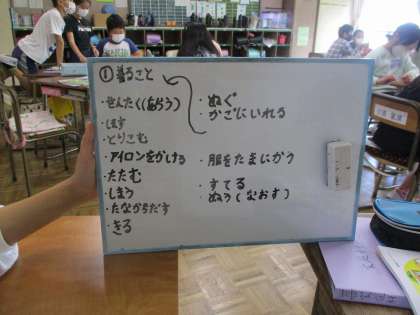 ① 着ること
・せんたく(あらう)
・ほす
・とりこむ
・アイロンをかける
・たたむ
・しまう
・たなからだす
・きる
・ぬぐ
・かごにいれる
・服をたまにかう
・すてる
・ぬう(なおす)